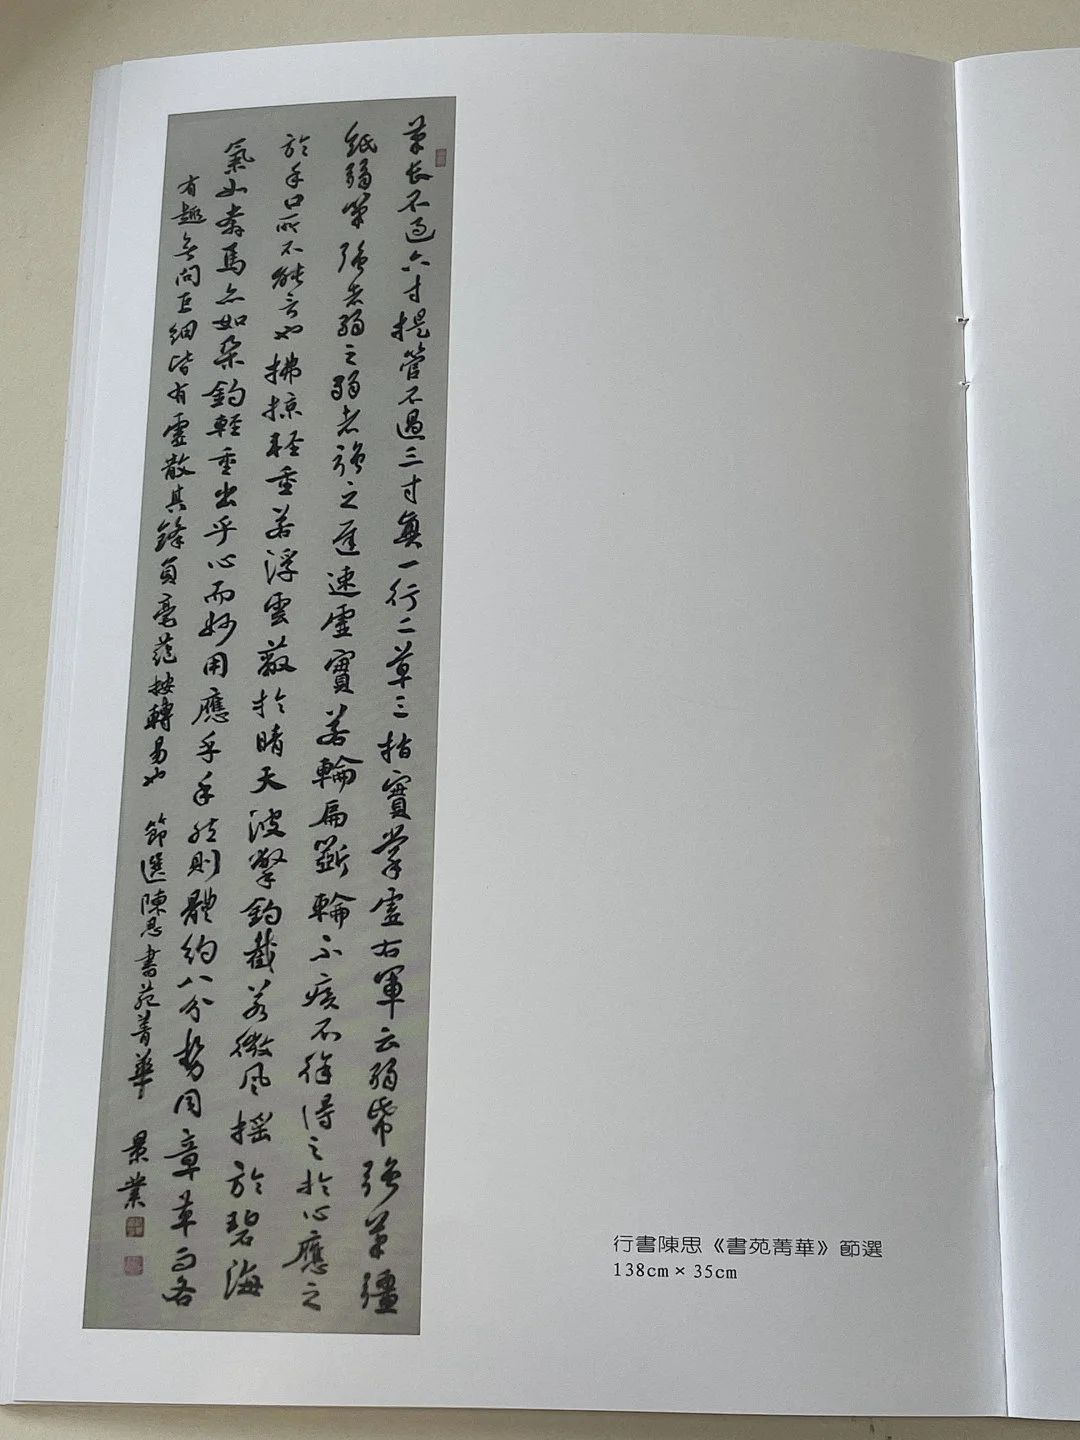 筆长不過六寸提管不過三寸真一行二草三指實掌虛右軍云弱帋强筆彊
紙弱筆强者弱之弱者强之遲速虛實若輪扁斲輪不疾不徐得之於心應之
於手口所不能言也拂掠輕重若浮雲蔽於晴天波撆鈎截若微风摇於碧海
氣如奔馬亦如朵鈎輕重出乎心而妙用應乎手然則體約八分勢同章草而各
有趣無問巨細皆有虛散其鋒員毫蕝按轉易也 節選陳思書苑菁華 景業
行書陳思《書苑菁華》節選
138cm×35cm